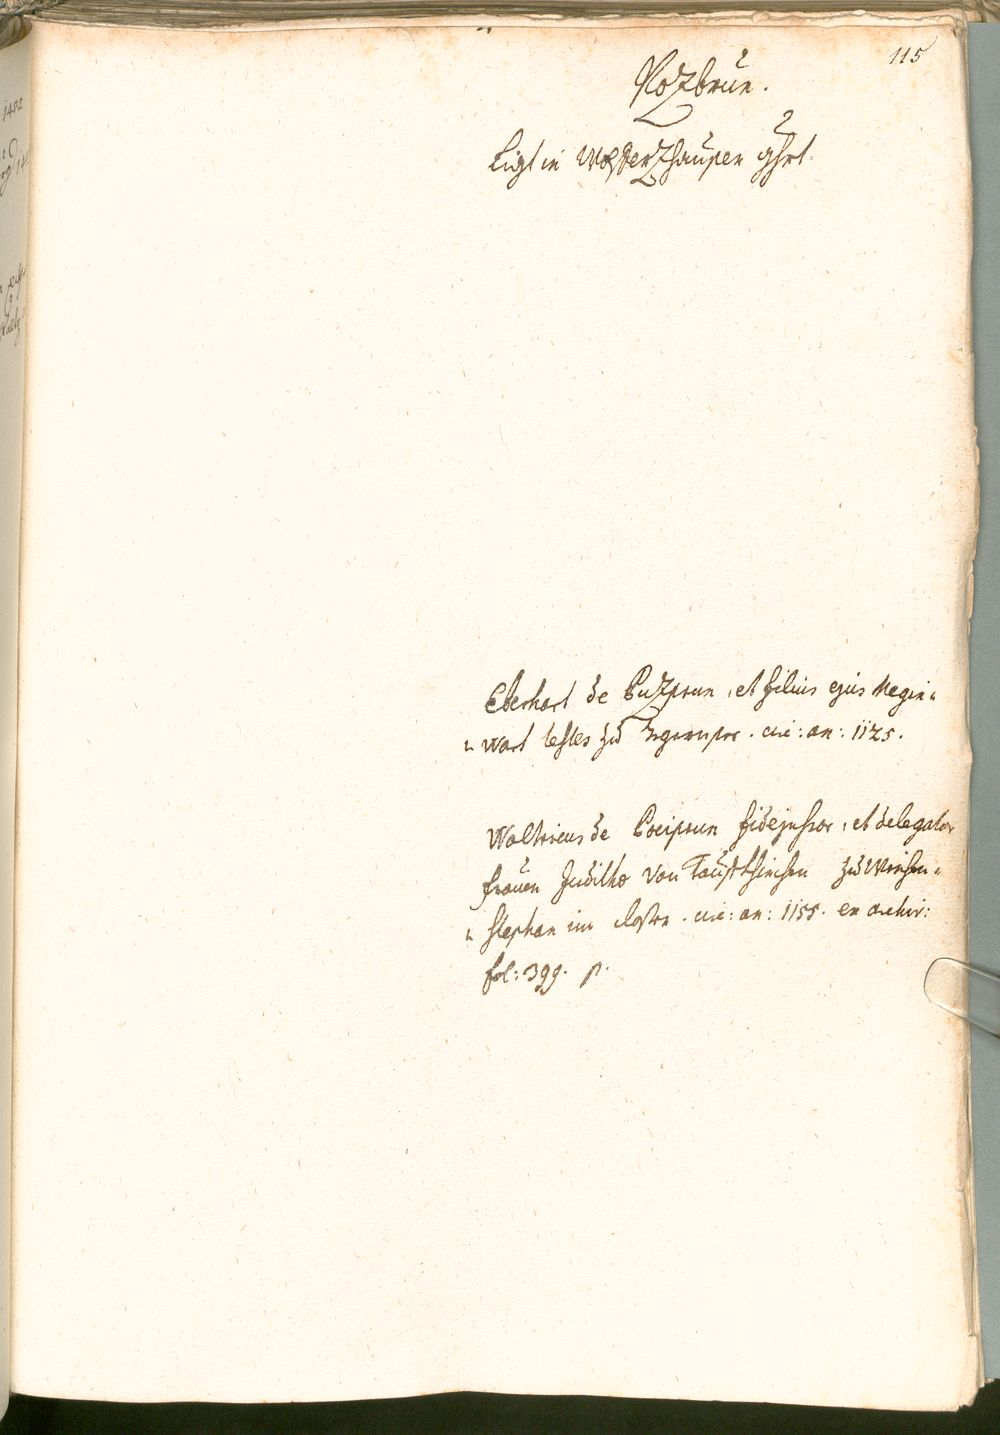 115
Pozbrun.
Ligt in Wolfferzhausen ghrt.
Eberhart de Puzprun, et filius ejus Megin=
=wart testes zu Tegernsee. cir: an: 1125.
Waltricus de Pociprun fidejussor, et delegator
frauen Juditha von Tauffkhirchen zu Weichen=
=stephan im closter. cir: an: 1155. ex archiv:
fol: 399. p.
1402